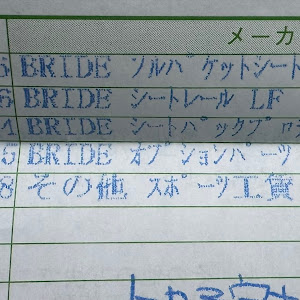 メーカ
5 BRIDE フルバケットシート
6 BRIDE シートレール LF
4 BRIDE シートバックプロ
5 BRIDE オプションパーツ
8 その他 スポーツ工賃